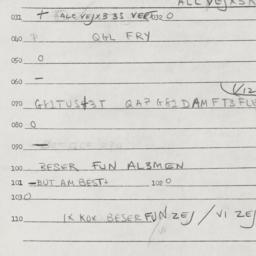 ALC VEJX3
031 + ALC VEJXB 3S VERT 032 0
040 P QGL FRY
050 0
060 –
070 GF1TUS43T QA7 G81 DAM FT3 FLE
080 0
090 –
100 BESER FUN AL3MEN
101 –BUT AM BEST+ 102 0
103 0
110 IX KOK BESER FUN ZEJ / VI ZEJ